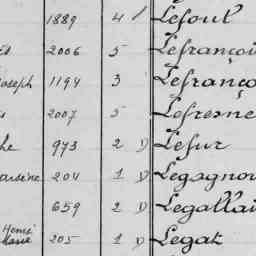 1889 4 / Lefoul
2006 5 Lefrançoi
oseph 1194 3 Lefranço
2007 5 Lefresne
he 973 2 v Lefur
arsène 204 1 v Legagnou
659 2 v Legallai
Henri
Marie 205 1 v Legat